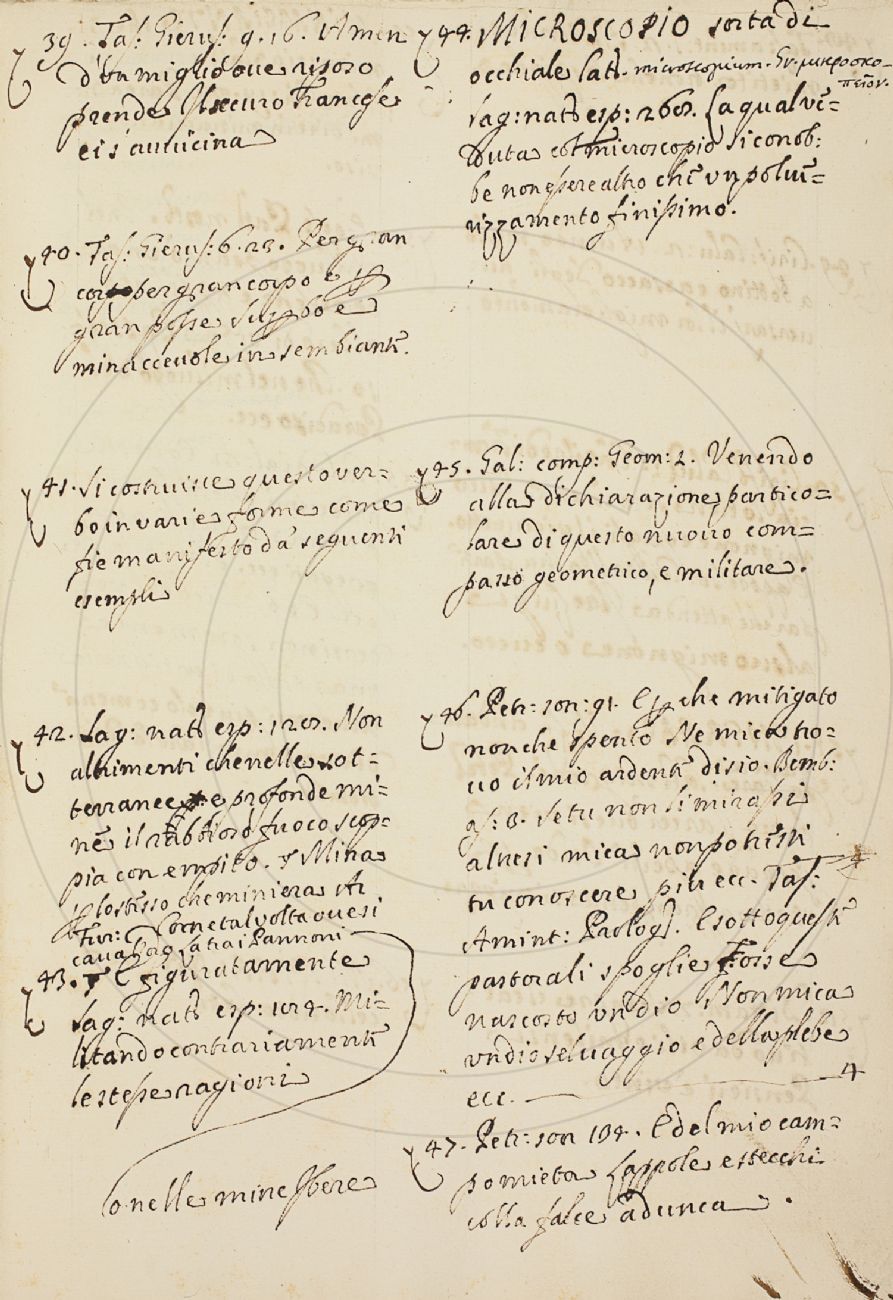 39. Tas: Gierus: 9. 16. A men
d'un miglio ove riposo
prende Il securo Francese
ei s'avvicina
40. Tas: Gierus: 6. 23. Per gran
per gran corpo e per
gran posse Superbo e
minaccevole in sembiante.
41. Si costruisce questo ver=
bo in varie forme come
fie manifesto da seguenti
esempli
42. Sag: nat: esp: 128. Non
altrimenti che nelle sot=
terranee, e profonde mi=
ne il rabbioso fuoco scop=
pia con empito. Mina
per lo stesso che miniera Ar
Fur: Come talvolta ove si
cava Tra i Pannoni
o nelle mine Ibere
43. figuratamente
Sag: nat: esp: Mi=
litando contrariamente
le stesse ragioni
44. MICROSCOPIO sorta di
occhiale Lat. microscopium. Gr. μικροσκο-
πεῖον.
Sag: nat: esp: 268. La qual ve=
duta col microscopio si conob=
be non essere altro che un polve=
rizzamento finissimo.
45. Gal: comp: Geom: 2. Venendo
alla dichiarazione partico=
lare di questo nuovo com=
passo geometrico, e militare.
46. Petr: son: 91. E perche mitigato
nonche spento Ne mica tro=
vo il mio ardente disio. Bemb:
as: 3. Se tu non ti mirassi
altresi mica non potresti
tu conoscere piu ecc. Tas:
Amint: Prolog. E sotto queste
pastorali spoglie Fosse
nascosto un dio Non mica
un dio selvaggio e della plebe
ecc.
47. Petr: son 104. E del mio cam=
po mieta Lappole e stecchi
colla falce adunca.